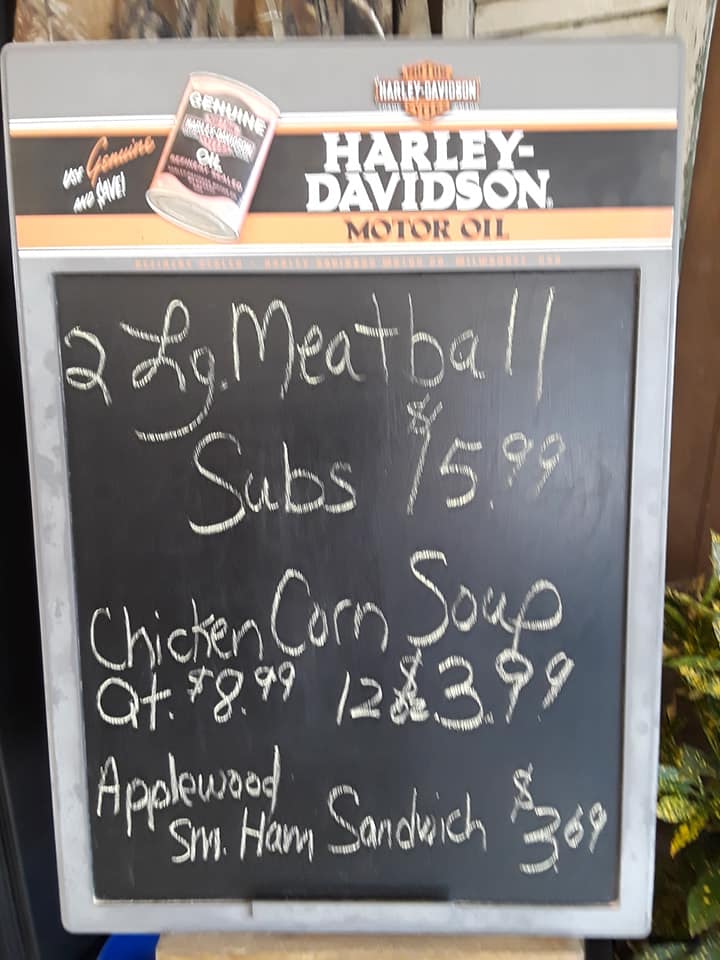 HARLEY-DAVIDSON
USE Genuine
AND SAVE!
GENUINE
HARLEY-DAVIDSON
OIL
HARLEY-
DAVIDSON
MOTOR OIL
2 Lg. Meatball
Subs $15.99
Chicken Corn Soup
Qt. $8.99 12oz. $3.99
Applewood
Sm. Ham Sandwich $3.69